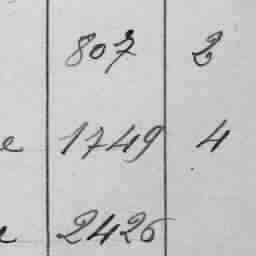 807 2
e 1749 4
e 2426